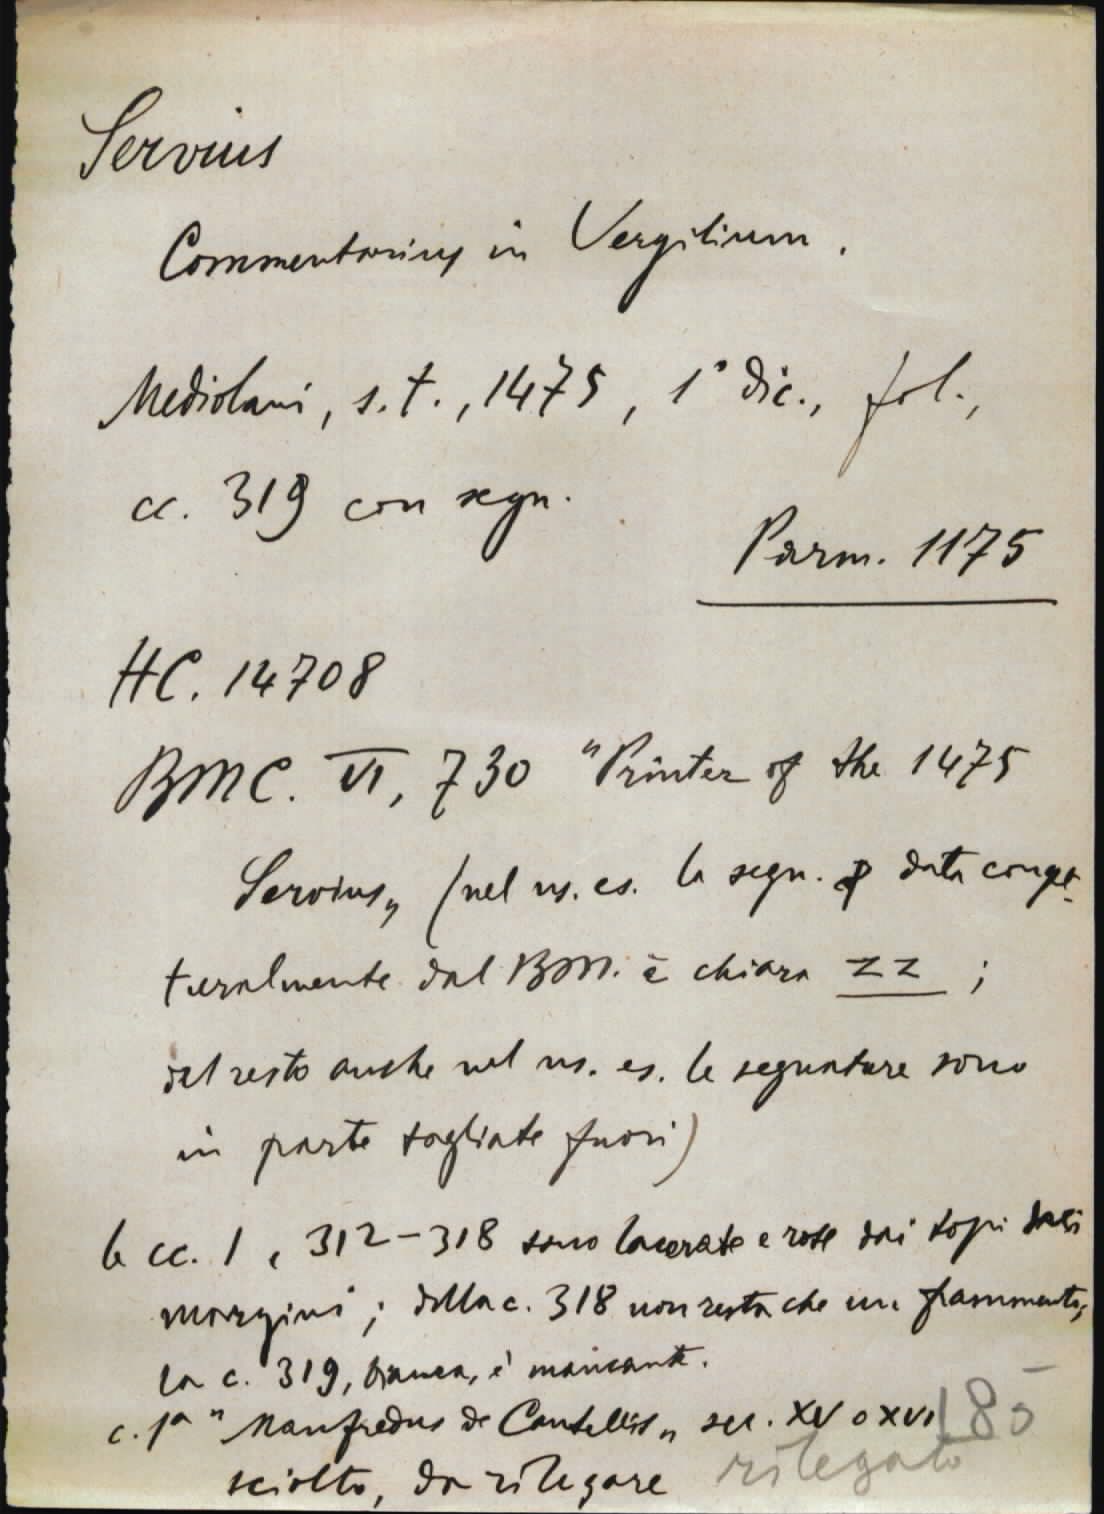 Servius
Commentarius in Vergilium.
Mediolani, s.t., 1475, 1° dic., fol.,
cc. 319 con segn.
Parm. 1175
HC. 14708
BMC. VI, 730 "Printer of the 1475
Servius„ (nel ns. es. la segn. data conget-
turalmente dal BM. è chiara zz ;
del resto anche nel ns. es. le segnature sono
in parte tagliate fuori)
le cc. 1, 312-318 sono lacerate e rose dai topi dai
margini; della c. 318 non resta che un frammento;
la c. 319, bianca, è mancante.
c. 1a "Manfredus de Cantellis„ sec. XV o XVI
180
sciolto, da rilegare rilegato